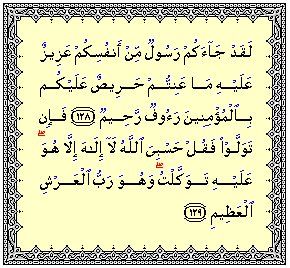 لَقَدْ جَآءَكُمْ رَسُولٌ مِّنْ أَنفُسِكُمْ عَزِيزٌ
عَلَيْهِ مَا عَنِتُّمْ حَرِيصٌ عَلَيْكُم
بِٱلْمُؤْمِنِينَ رَءُوفٌ رَّحِيمٌ ١٢٨ فَإِن
تَوَلَّوْا۟ فَقُلْ حَسْبِىَ ٱللَّهُ لَآ إِلَٰهَ إِلَّا هُوَ ۖ
عَلَيْهِ تَوَكَّلْتُ ۖ وَهُوَ رَبُّ ٱلْعَرْشِ
ٱلْعَظِيمِ ١٢٩